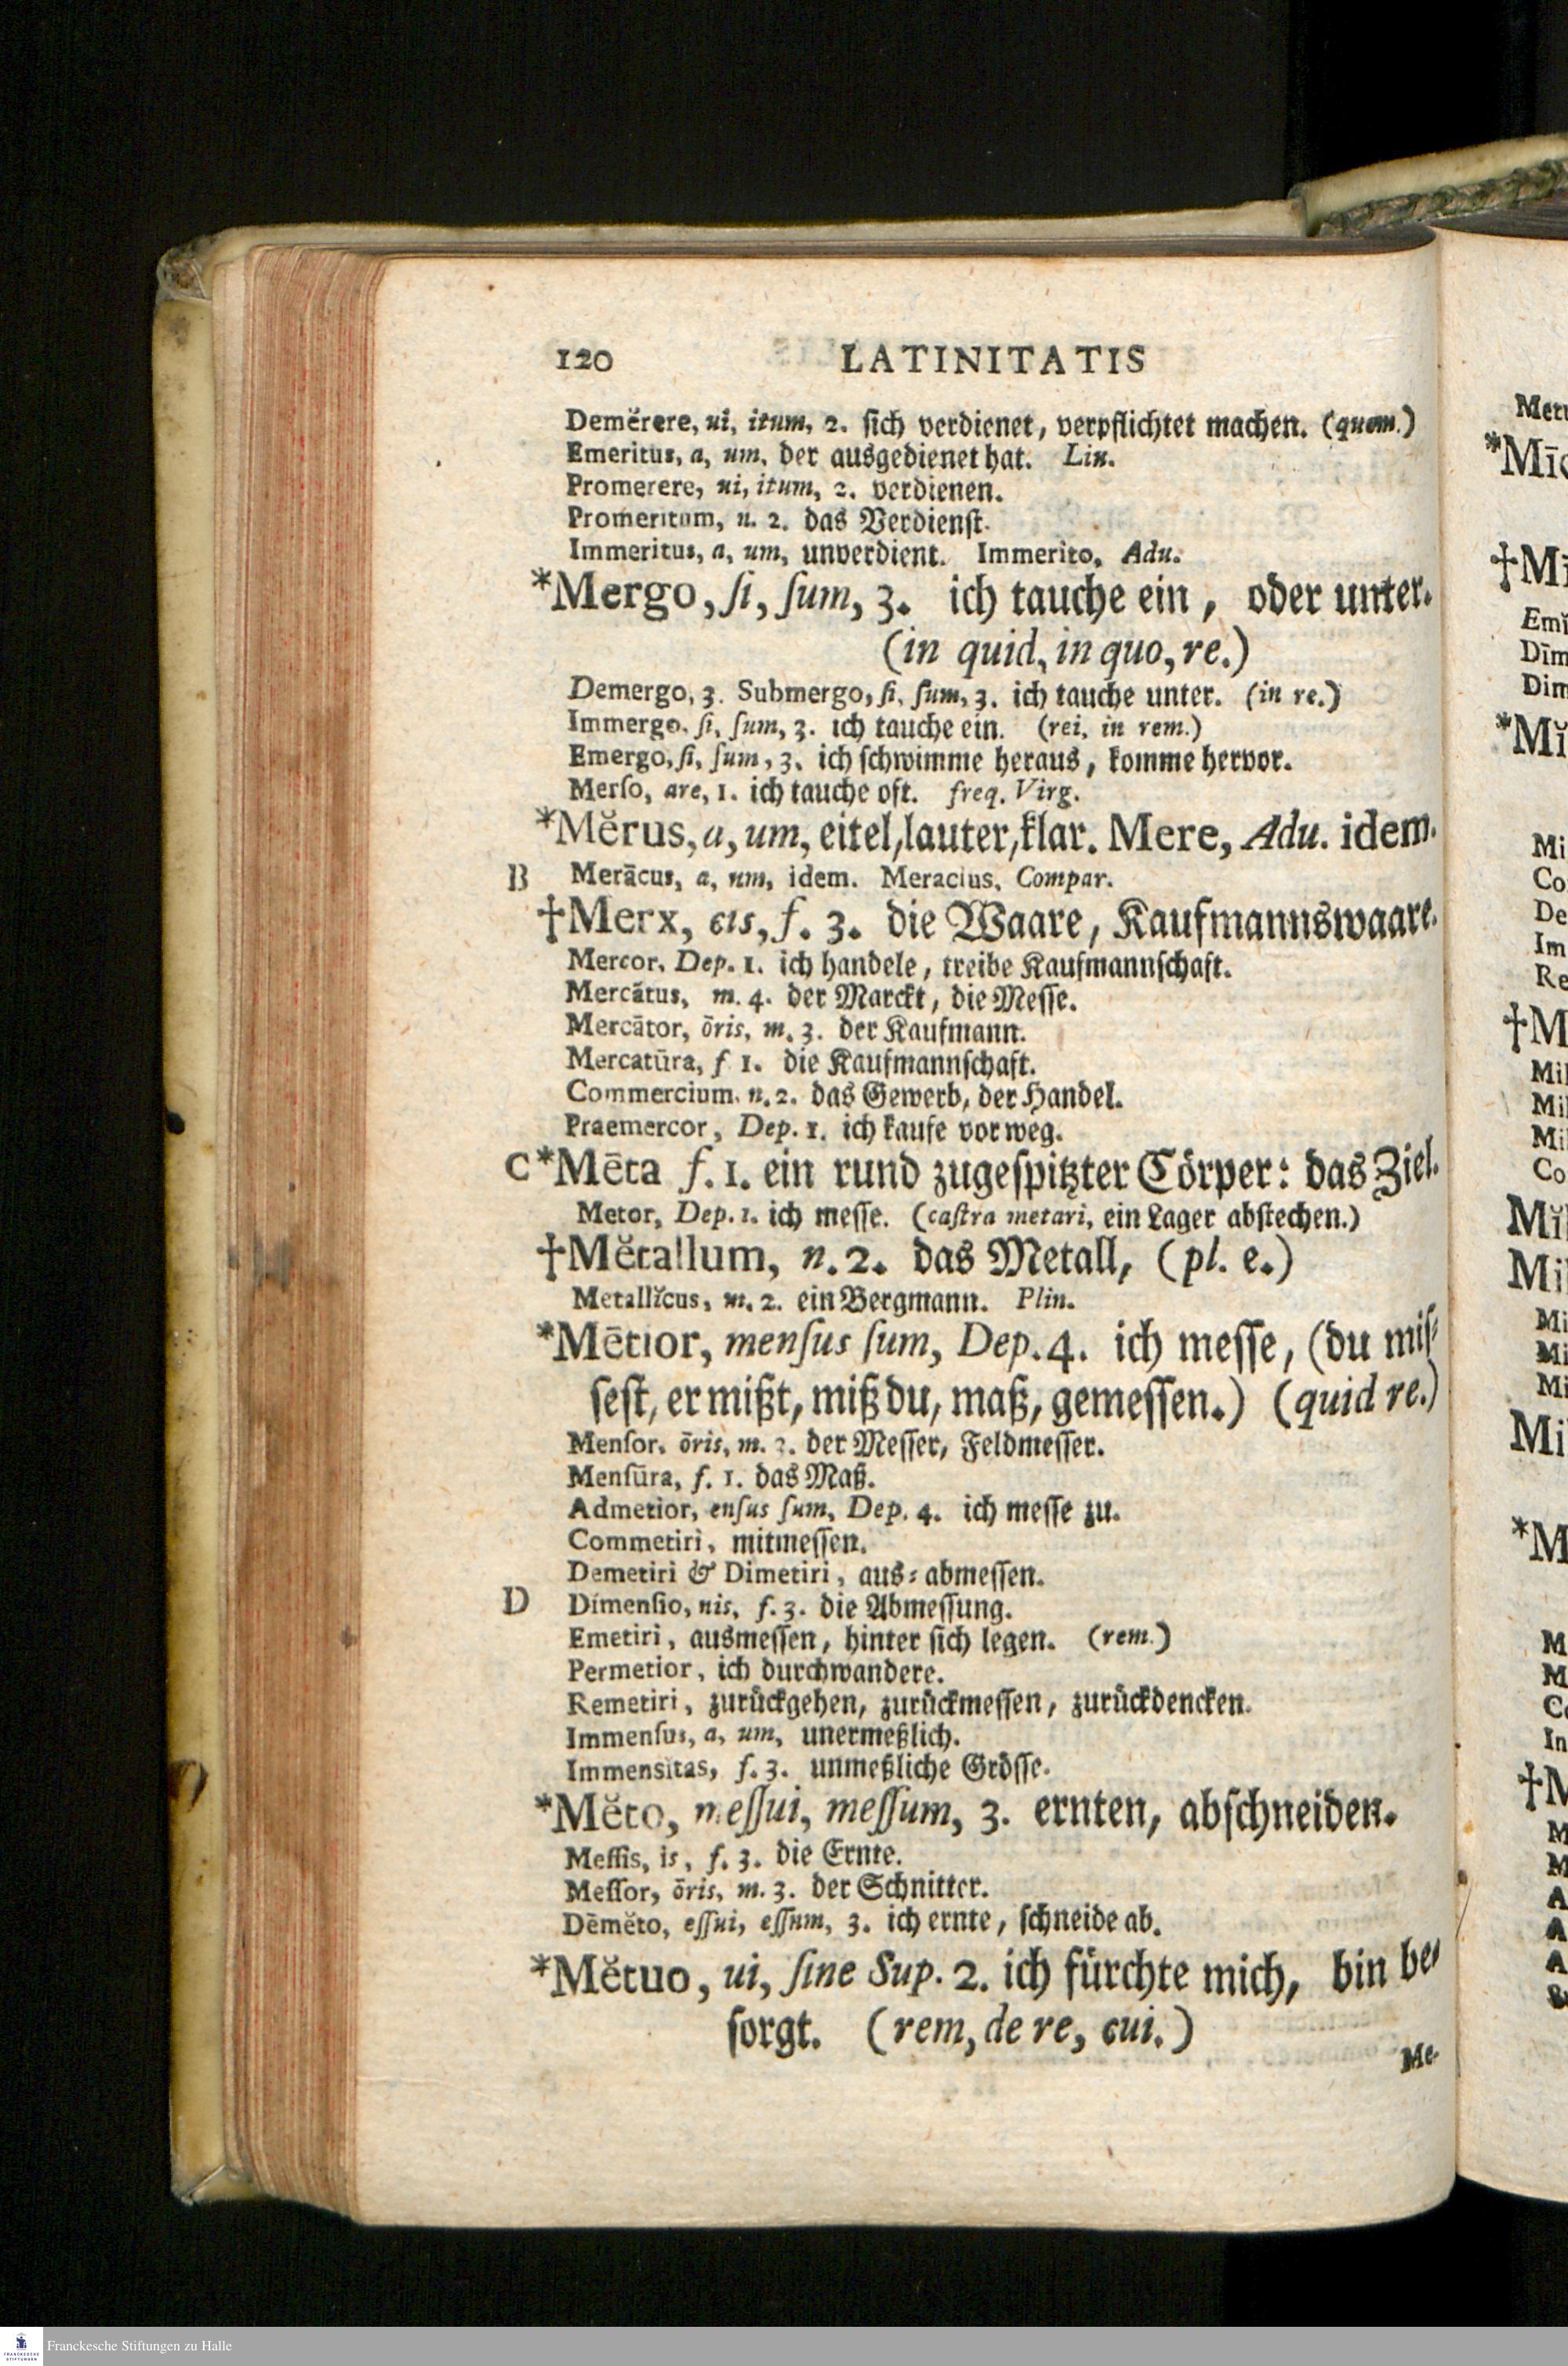 120 LATINITATIS
Demĕrere, ui, itum, 2. ſich verdienet, verpflichtet machen. (quem.)
Emeritus, a, um, der ausgedienet hat. Liu.
Promerere, ui, itum, 2. verdienen.
Promeritum, n. 2. das Verdienſt.
Immeritus, a, um, unverdient. Immerito, Adu.
*Mergo, ſi, ſum, 3. ich tauche ein, oder unter.
(in quid, in quo, re.)
Demergo, 3. Submergo, ſi, ſum, 3. ich tauche unter. (in re.)
Immergo, ſi, ſum, 3. ich tauche ein. (rei, in rem.)
Emergo, ſi, ſum, 3. ich ſchwimme heraus, komme hervor.
Merſo, are, 1. ich tauche oft. freq. Virg.
*Mĕrus, a, um, eitel, lauter, klar. Mere, Adu. idem.
B Merācus, a, um, idem. Meracius, Compar.
†Merx, cis, f. 3. die Waare, Kaufmannswaare.
Mercor, Dep. 1. ich handele, treibe Kaufmannſchaft.
Mercātus, m. 4. der Marckt, die Meſſe.
Mercātor, ōris, m. 3. der Kaufmann.
Mercatūra, f 1. die Kaufmannſchaft.
Commercium, n. 2. das Gewerb, der Handel.
Praemercor, Dep. 1. ich kaufe vorweg.
C *Mēta f. 1. ein rund zugeſpitzter Cörper: das Ziel.
Metor, Dep. 1. ich meſſe. (caſtra metari, ein Lager abſtechen.)
†Mĕtallum, n. 2. das Metall, (pl. e.)
Metallĭcus, m. 2. ein Bergmann. Plin.
*Mētior, menſus ſum, Dep. 4. ich meſſe, (du miſ⸗
ſeſt, er mißt, miß du, maß, gemeſſen.) (quid re.)
Menſor, ōris, m. 3. der Meſſer, Feldmeſſer.
Menſūra, f. 1. das Maß.
Admetior, enſus ſum, Dep. 4. ich meſſe zu.
Commetiri, mitmeſſen.
Demetiri & Dimetiri, aus⸗ abmeſſen.
D Dimenſio, nis, f. 3. die Abmeſſung.
Emetiri, ausmeſſen, hinter ſich legen. (rem.)
Permetior, ich durchwandere.
Remetiri, zurückgehen, zurückmeſſen, zurückdencken.
Immenſus, a, um, unermeßlich.
Immensitas, f. 3. unmeßliche Gröſſe.
*Mĕto, meſſui, meſſum, 3. ernten, abſchneiden.
Meſſis, is, f. 3. die Ernte.
Meſſor, ōris, m. 3. der Schnitter.
Dēmĕto, eſſui, eſſum, 3. ich ernte, ſchneide ab.
*Mĕtuo, ui, ſine Sup. 2. ich fürchte mich, bin be⸗
ſorgt. (rem, de re, cui.)
Me-
Franckesche Stiftungen zu Halle